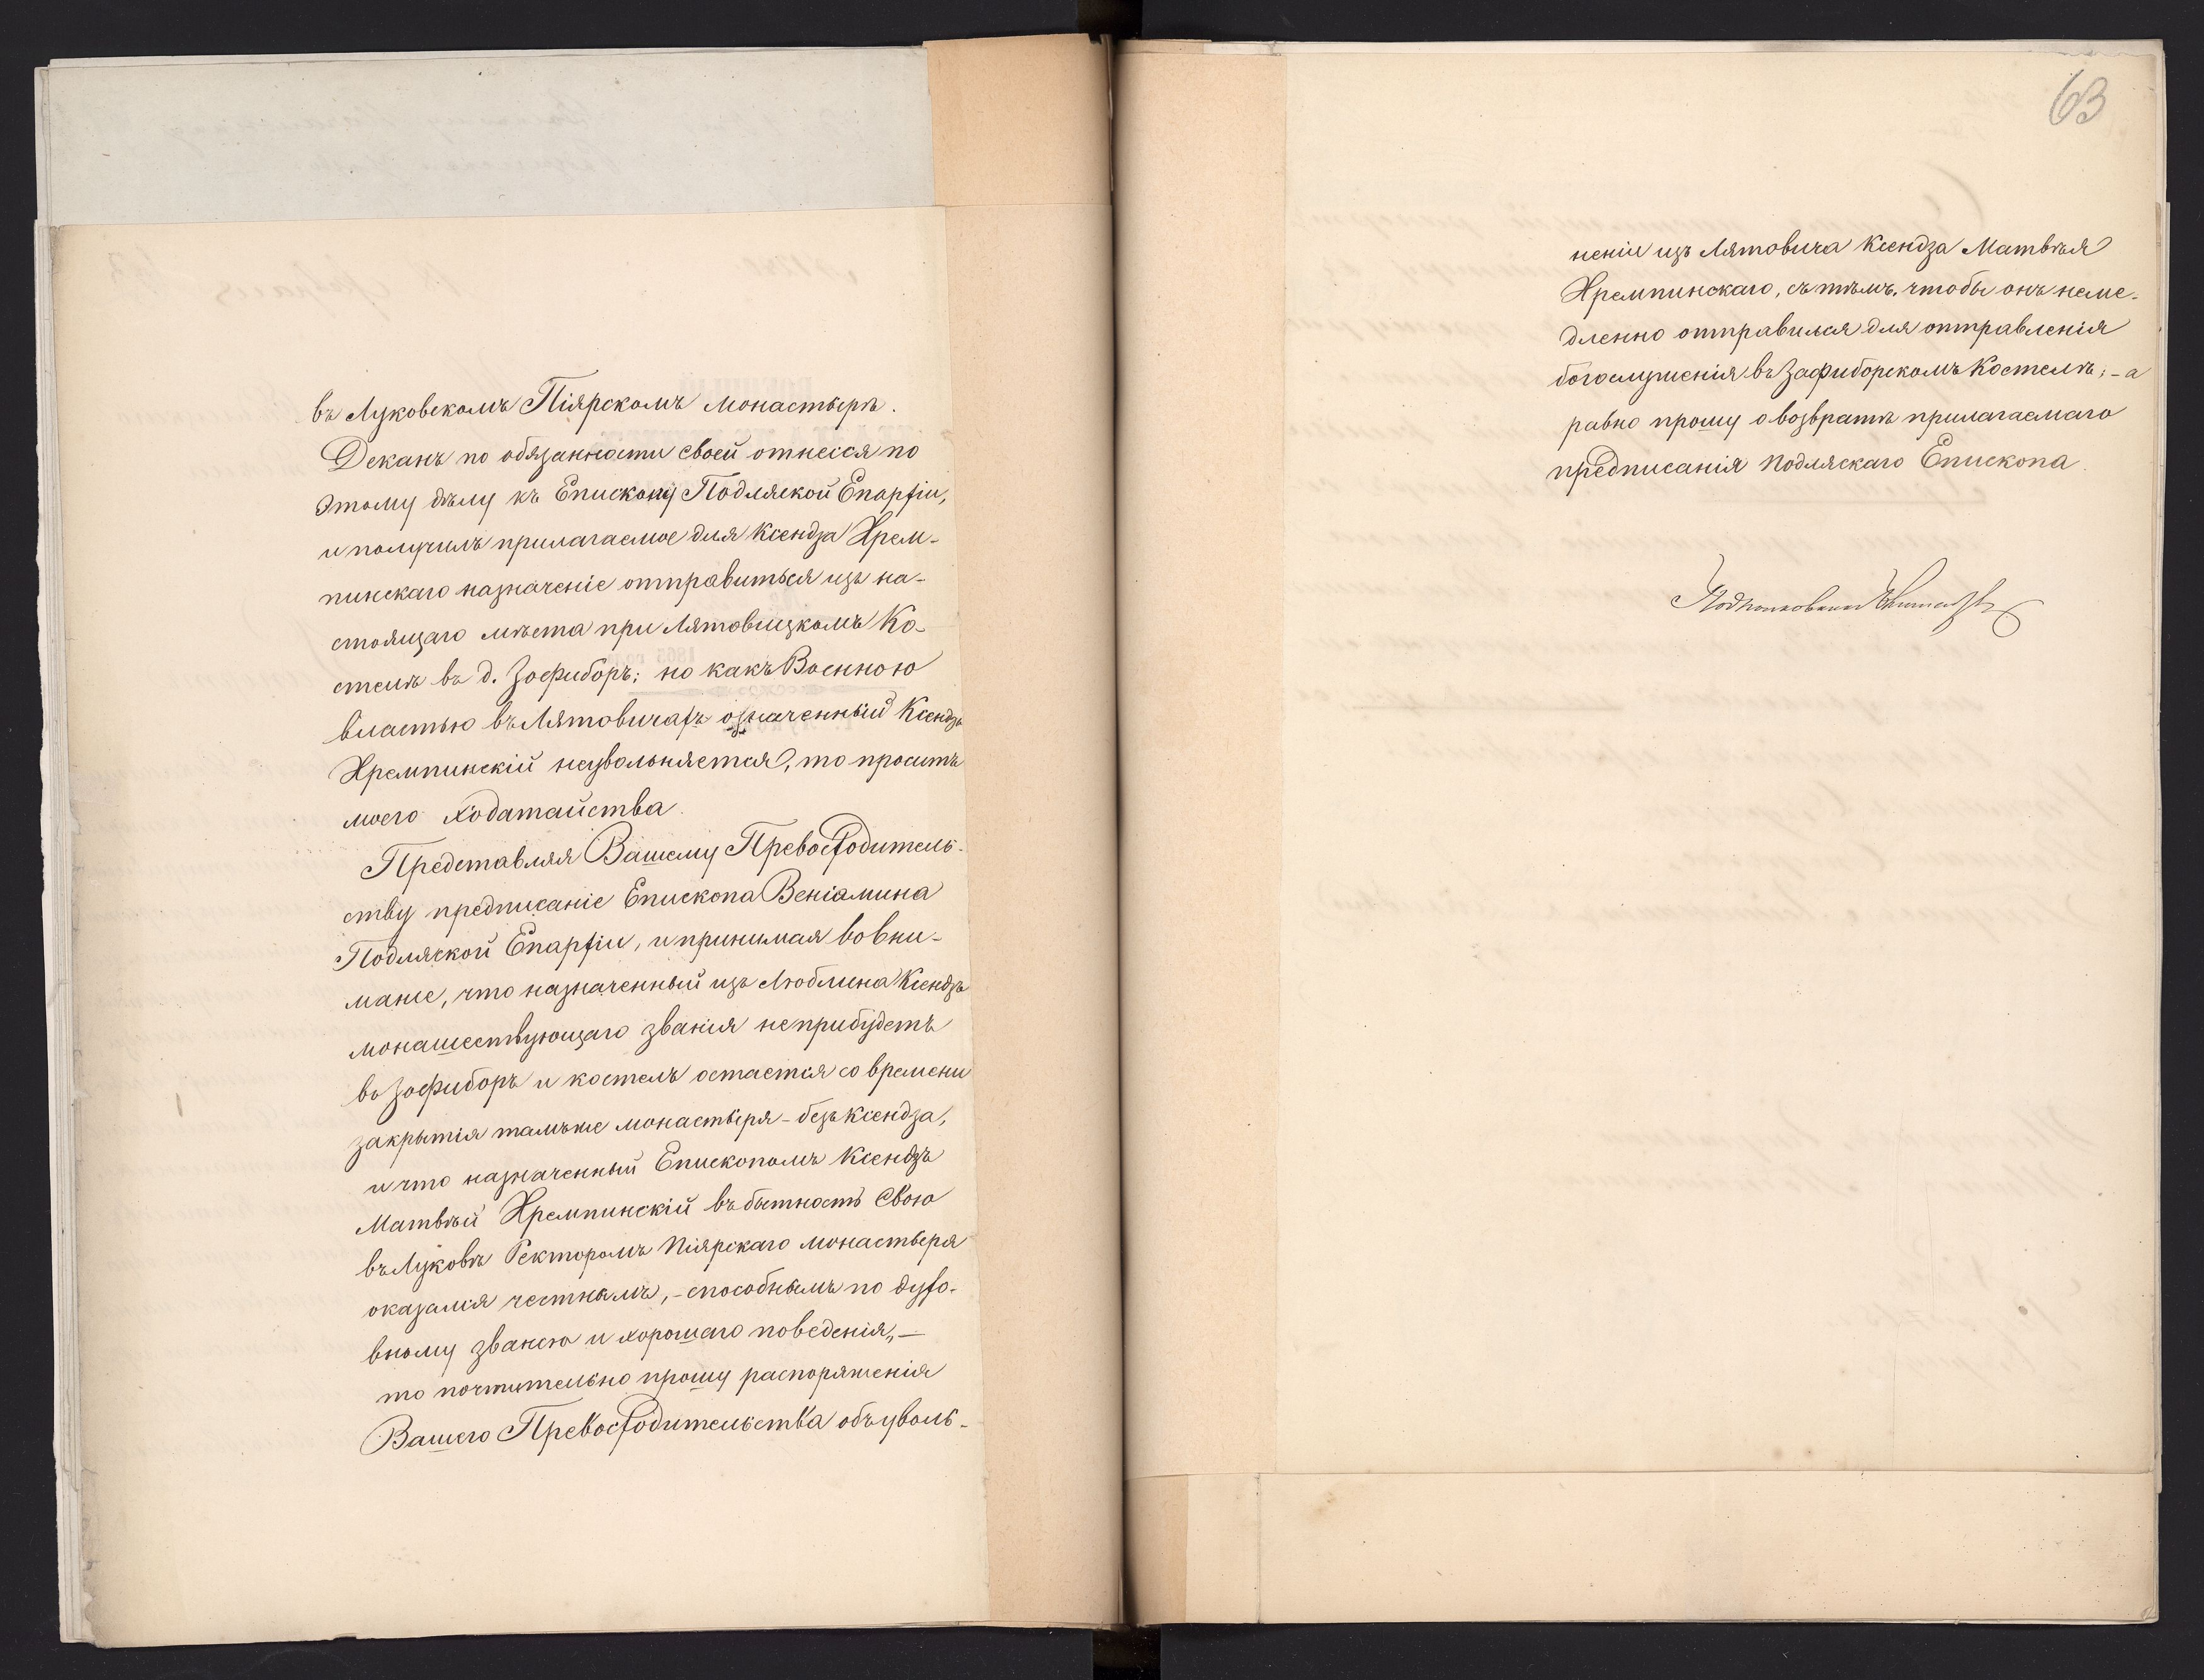 въ Луковскомъ Піярскомъ Монастырѣ.
Деканъ по обязанности своей отнесся по
этому дѣлу къ Епископу Подляской Епархіи,
и получилъ прилагаемое для Ксендза Крем-
пинскаго назначеніе отправиться изъ на-
стоящаго мѣста при Лятовицкомъ Ко-
стелѣ въ д. Зофиборъ; но какъ Военною
властью въ Лятовичахъ означенный Ксендзъ
Кремпинскій неувольняется, то проситъ
моего ходатайства.
Представляя Вашему Превосходитель-
ству предписаніе Епископа Веніамина
Подляской Епархіи, и принимая во вни-
маніе, что назначенный изъ Люблина Ксендзъ
монашествующаго званія неприбудетъ
въ Зофиборъ и костелъ остается со времени
закрытія тамъже монастыря - безъ Ксендза,
и что назначенный Епископомъ Ксендзъ
Матвѣй Кремпинскій въ бытность Свою
въ Луковѣ Ректоромъ Піярскаго монастыря
оказался честнымъ, - способнымъ по духо-
вному званію и хорошаго поведенія, —
то почтительно прошу распоряженія
Вашего Превосходительства объ уволь-
63
неніи изъ Лятовича Ксендза Матвѣя
Кремпинскаго, съ тѣмъ, чтобы онъ неме-
дленно отправился для отправленія
богослуженія въ Зофиборскомъ Костелѣ; - а
равно прошу о возвратѣ прилагаемаго
предписанія Подляскаго Епископа.
Подполковникъ